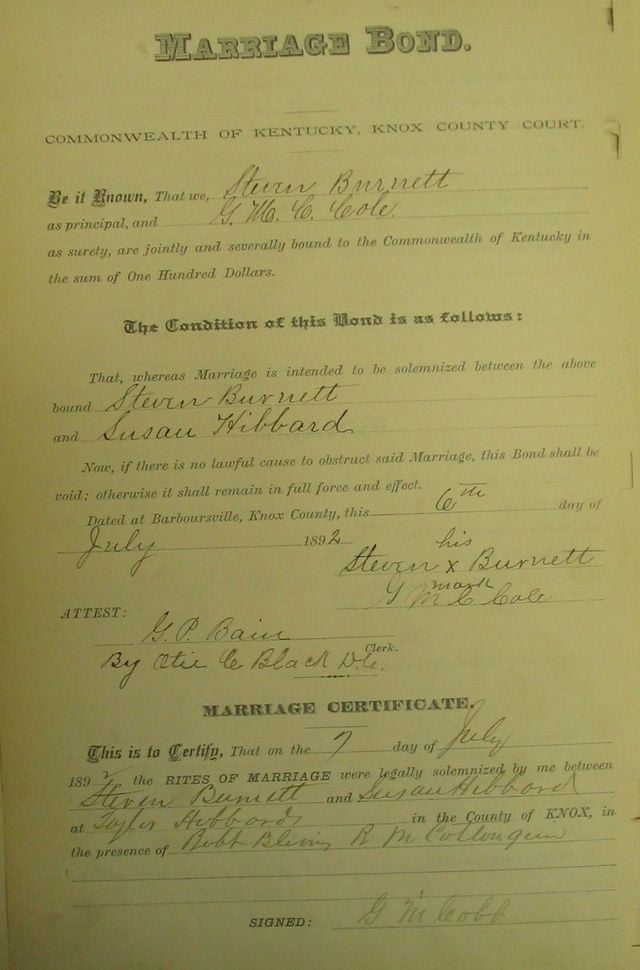 MARRIAGE BOND.
COMMONWEALTH OF KENTUCKY, KNOX COUNTY COURT.
Be it Known, That we, Steven Burnett
as principal, and G. M. C. Cole.
as surety, are jointly and severally bound to the Commonwealth of Kentucky in
the sum of One Hundred Dollars.
The Condition of this Bond is as follows:
That, whereas Marriage is intended to be solemnized between the above
bound Steven Burnett
and Susan Hibbard
Now, if there is no lawful cause to obstruct said Marriage, this Bond shall be
void; otherwise it shall remain in full force and effect.
Dated at Barboursville, Knox County, this 6th day of
July 1892
his
Steven x Burnett
mark
G M C Cole
ATTEST:
G. P. Bain
Clerk.
By Otie C Black D.C.
MARRIAGE CERTIFICATE.
This is to Certify, That on the 7 day of July
1892, the RITES OF MARRIAGE were legally solemnized by me between
Steven Burnett and Susan Hibbard
at Taylor Hibbards in the County of KNOX, in
the presence of Robt Blevins R M
SIGNED: G M Cobb